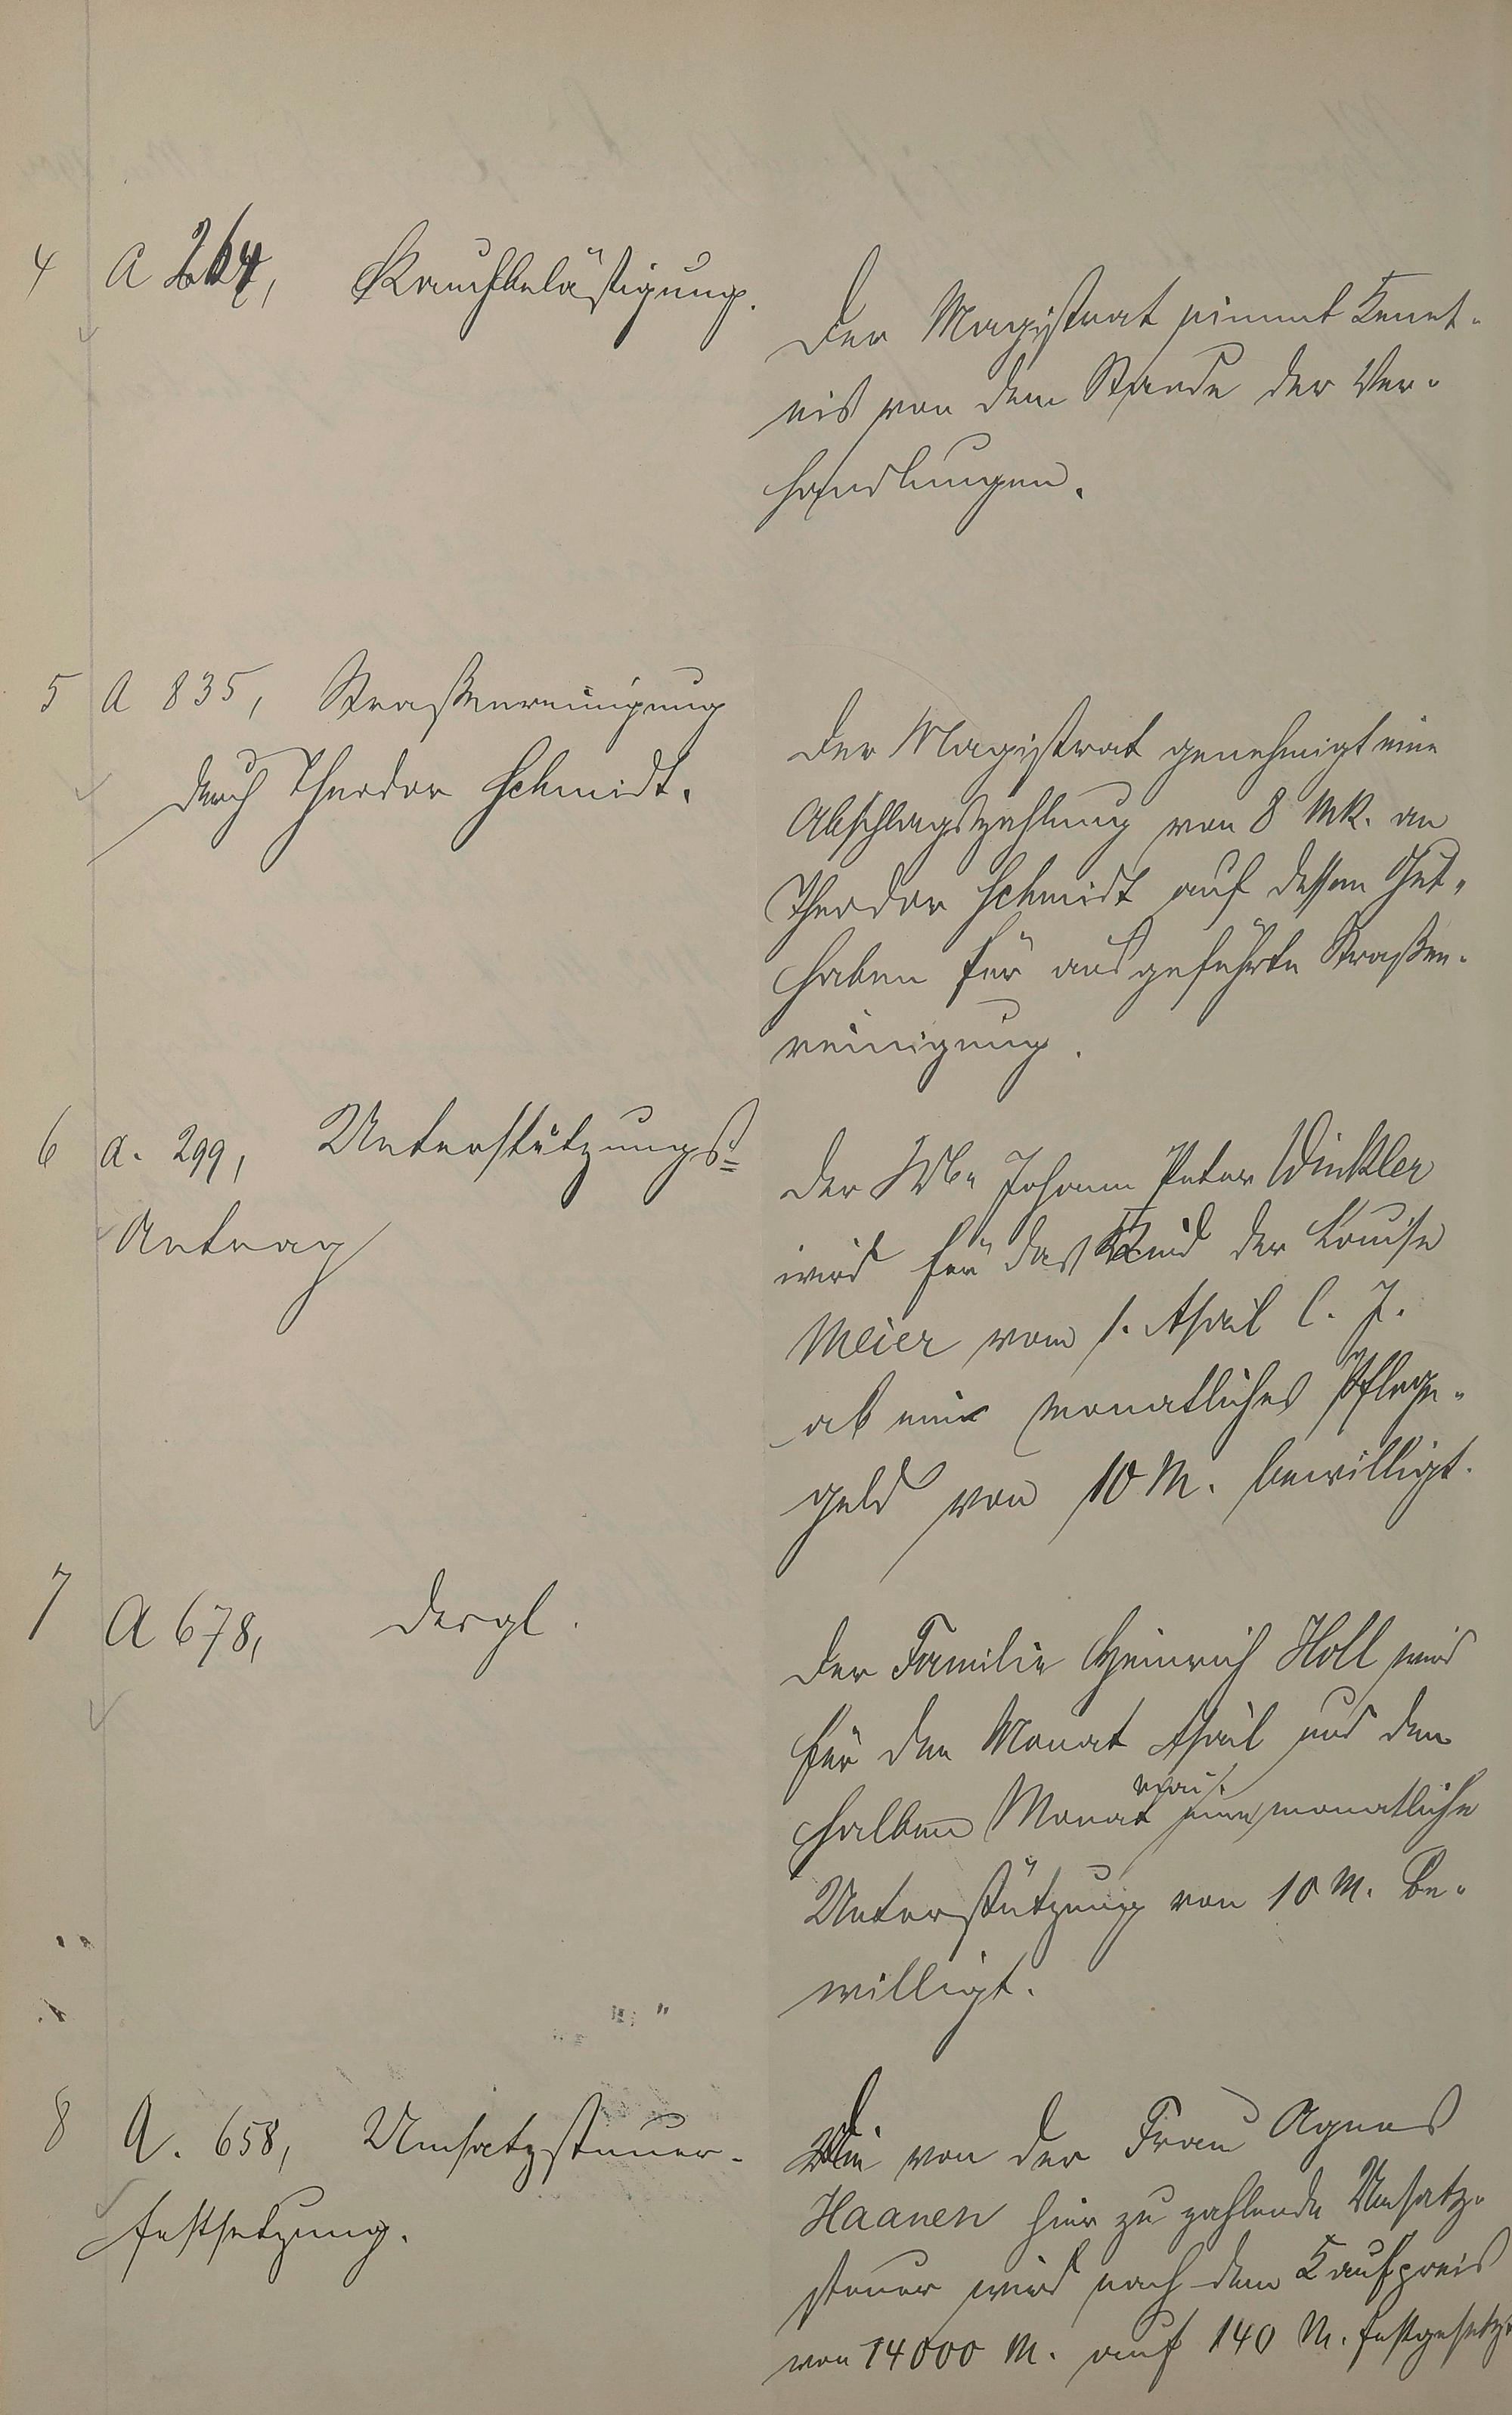 4 A 264, Rauchbelästigung.
Der Magistrat nimmt Kennt-
nis von dem Stande der Ver-
handlungen.
5 A 835, Straßenreinigung
durch Theodor Schmidt.
Der Magistrat genehmigt eine
Abschlagszahlung von 8 Mk. an
Theodor Schmidt auf dessen Gut-
haben für ausgeführte Straßen-
reinigung.
6 A. 299, Unterstützungs=
Antrag
Der Johann Peter Winkler
wird für das Kind der Louise
Meier vom 1. April l. J.
ab ein monatliches Pflege-
geld von 10 M. bewilligt.
7 A 678, Dergl.
Der Familie Heinrich Holl wird
für den Monat April und den
halben Monat Mai eine monatliche
Unterstützung von 10 M. be-
willigt.
8 A. 658, Umsatzsteuer-
festsetzung.
Die von der Frau Agnes
Haanen hier zu zahlende Umsatz-
steuer wird nach dem Kaufpreis
von 14000 M. auf 140 M. festgesetzt